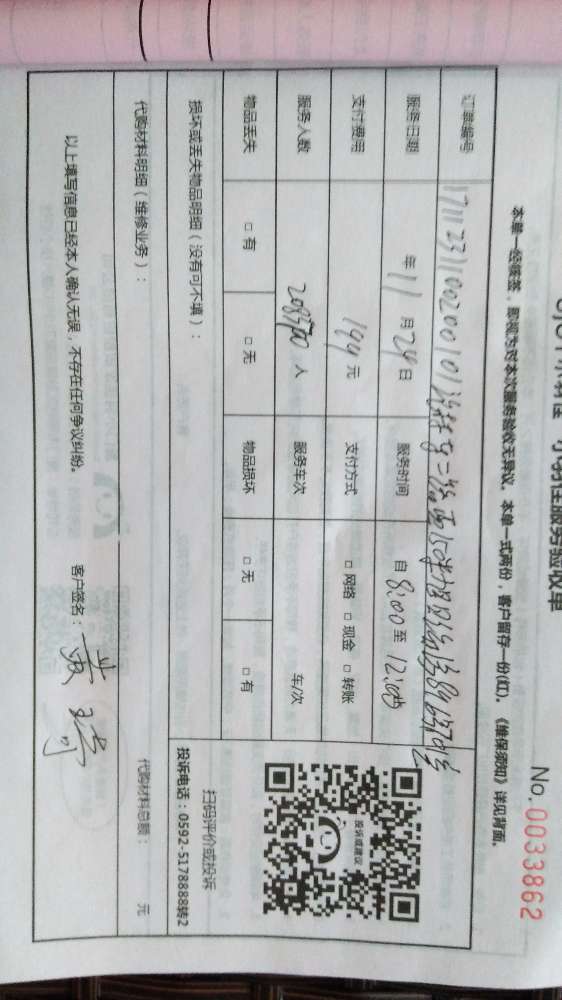 小羽佳服务验收单
No.0033862
本单一经签签，即视为对本次服务验收无异议。本单一式两份，客户留存一份(红)。《维保须知》详见背面。
订单编号 1711231100200101
服务日期 年 11 月 24 日 服务时间 自 8:00 至 12:00
支付费用 144 元 支付方式 □ 网络 □ 现金 □ 转账
服务人数 人 服务车次 车/次
物品丢失 □ 有 □ 无 物品损坏 □ 无 □ 有
扫码评价或投诉
投诉电话：0592-5178888转2
投诉或建议
损坏或丢失物品明细（没有可不填）：
代购材料明细（维修业务）： 代购材料总额： 元
以上填写信息已经本人确认无误，不存在任何争议纠纷。 客户签名：